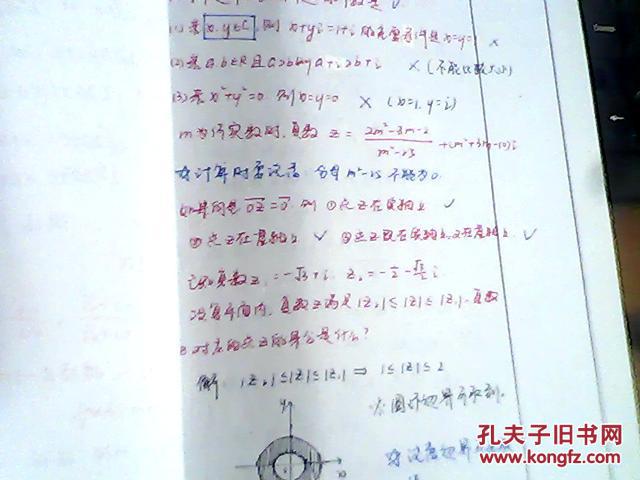 (1) 若 x,y∈C, 则 x+yi=1+i 的充要条件是 x=y=1 ×
(2) 若 a,b∈R 且 a>b 则 a+i>b+i × (不能比较大小)
(3) 若 x²+y²=0 则 x=y=0 × (x=1, y=i)
m为何实数时, 复数 z = (2m²-3m-2)/(m²-25) + (m²+3m-10)i
在计算时要注意 分母 m²-25 不能为0.
如果向量 OZ=0 则 ①点Z在实轴上 ✓
②点Z在虚轴上 ✓ ③点Z既在实轴上又在虚轴上 ✓
已知复数 z₁=-√3+i, z₂=-1/2-√3/2 i
复平面内, 复数z满足 |z₂|≤|z|≤|z₁|, 复数
z对应的点Z的集合是什么?
解: |z₂|≤|z|≤|z₁| ⇒ 1≤|z|≤2
圆环边界可取到.
y
x
要注意边界
孔夫子旧书网
www.kongfz.com